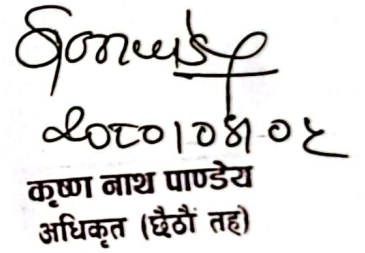 २०८०।०४।०५
कृष्ण नाथ पाण्डेय
अधिकृत (छैठौं तह)